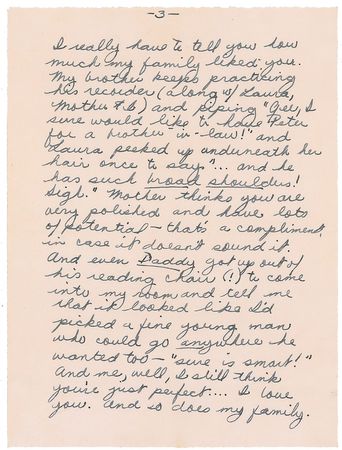 -3-
I really have to tell you how
much my family liked you.
My brother keeps practicing
his recorder (along w/ Laura,
Mother & b) and piping "Gee, I
sure would like to have Peter
for a brother-in-law!" and
Laura peeked up underneath her
hair once to say "... and he
has such broad shoulders!
Sigh." Mother thinks you are
very polished and have lots
of potential - that's a compliment
in case it doesn't sound it.
And even Daddy got up out of
his reading chair (!) to come
into my room and tell me
that it looked like I'd
picked a fine young man
who could go anywhere he
wanted too - "sure is smart!"
And me, well, I still think
you're just perfect.... I love
you. And so does my family.